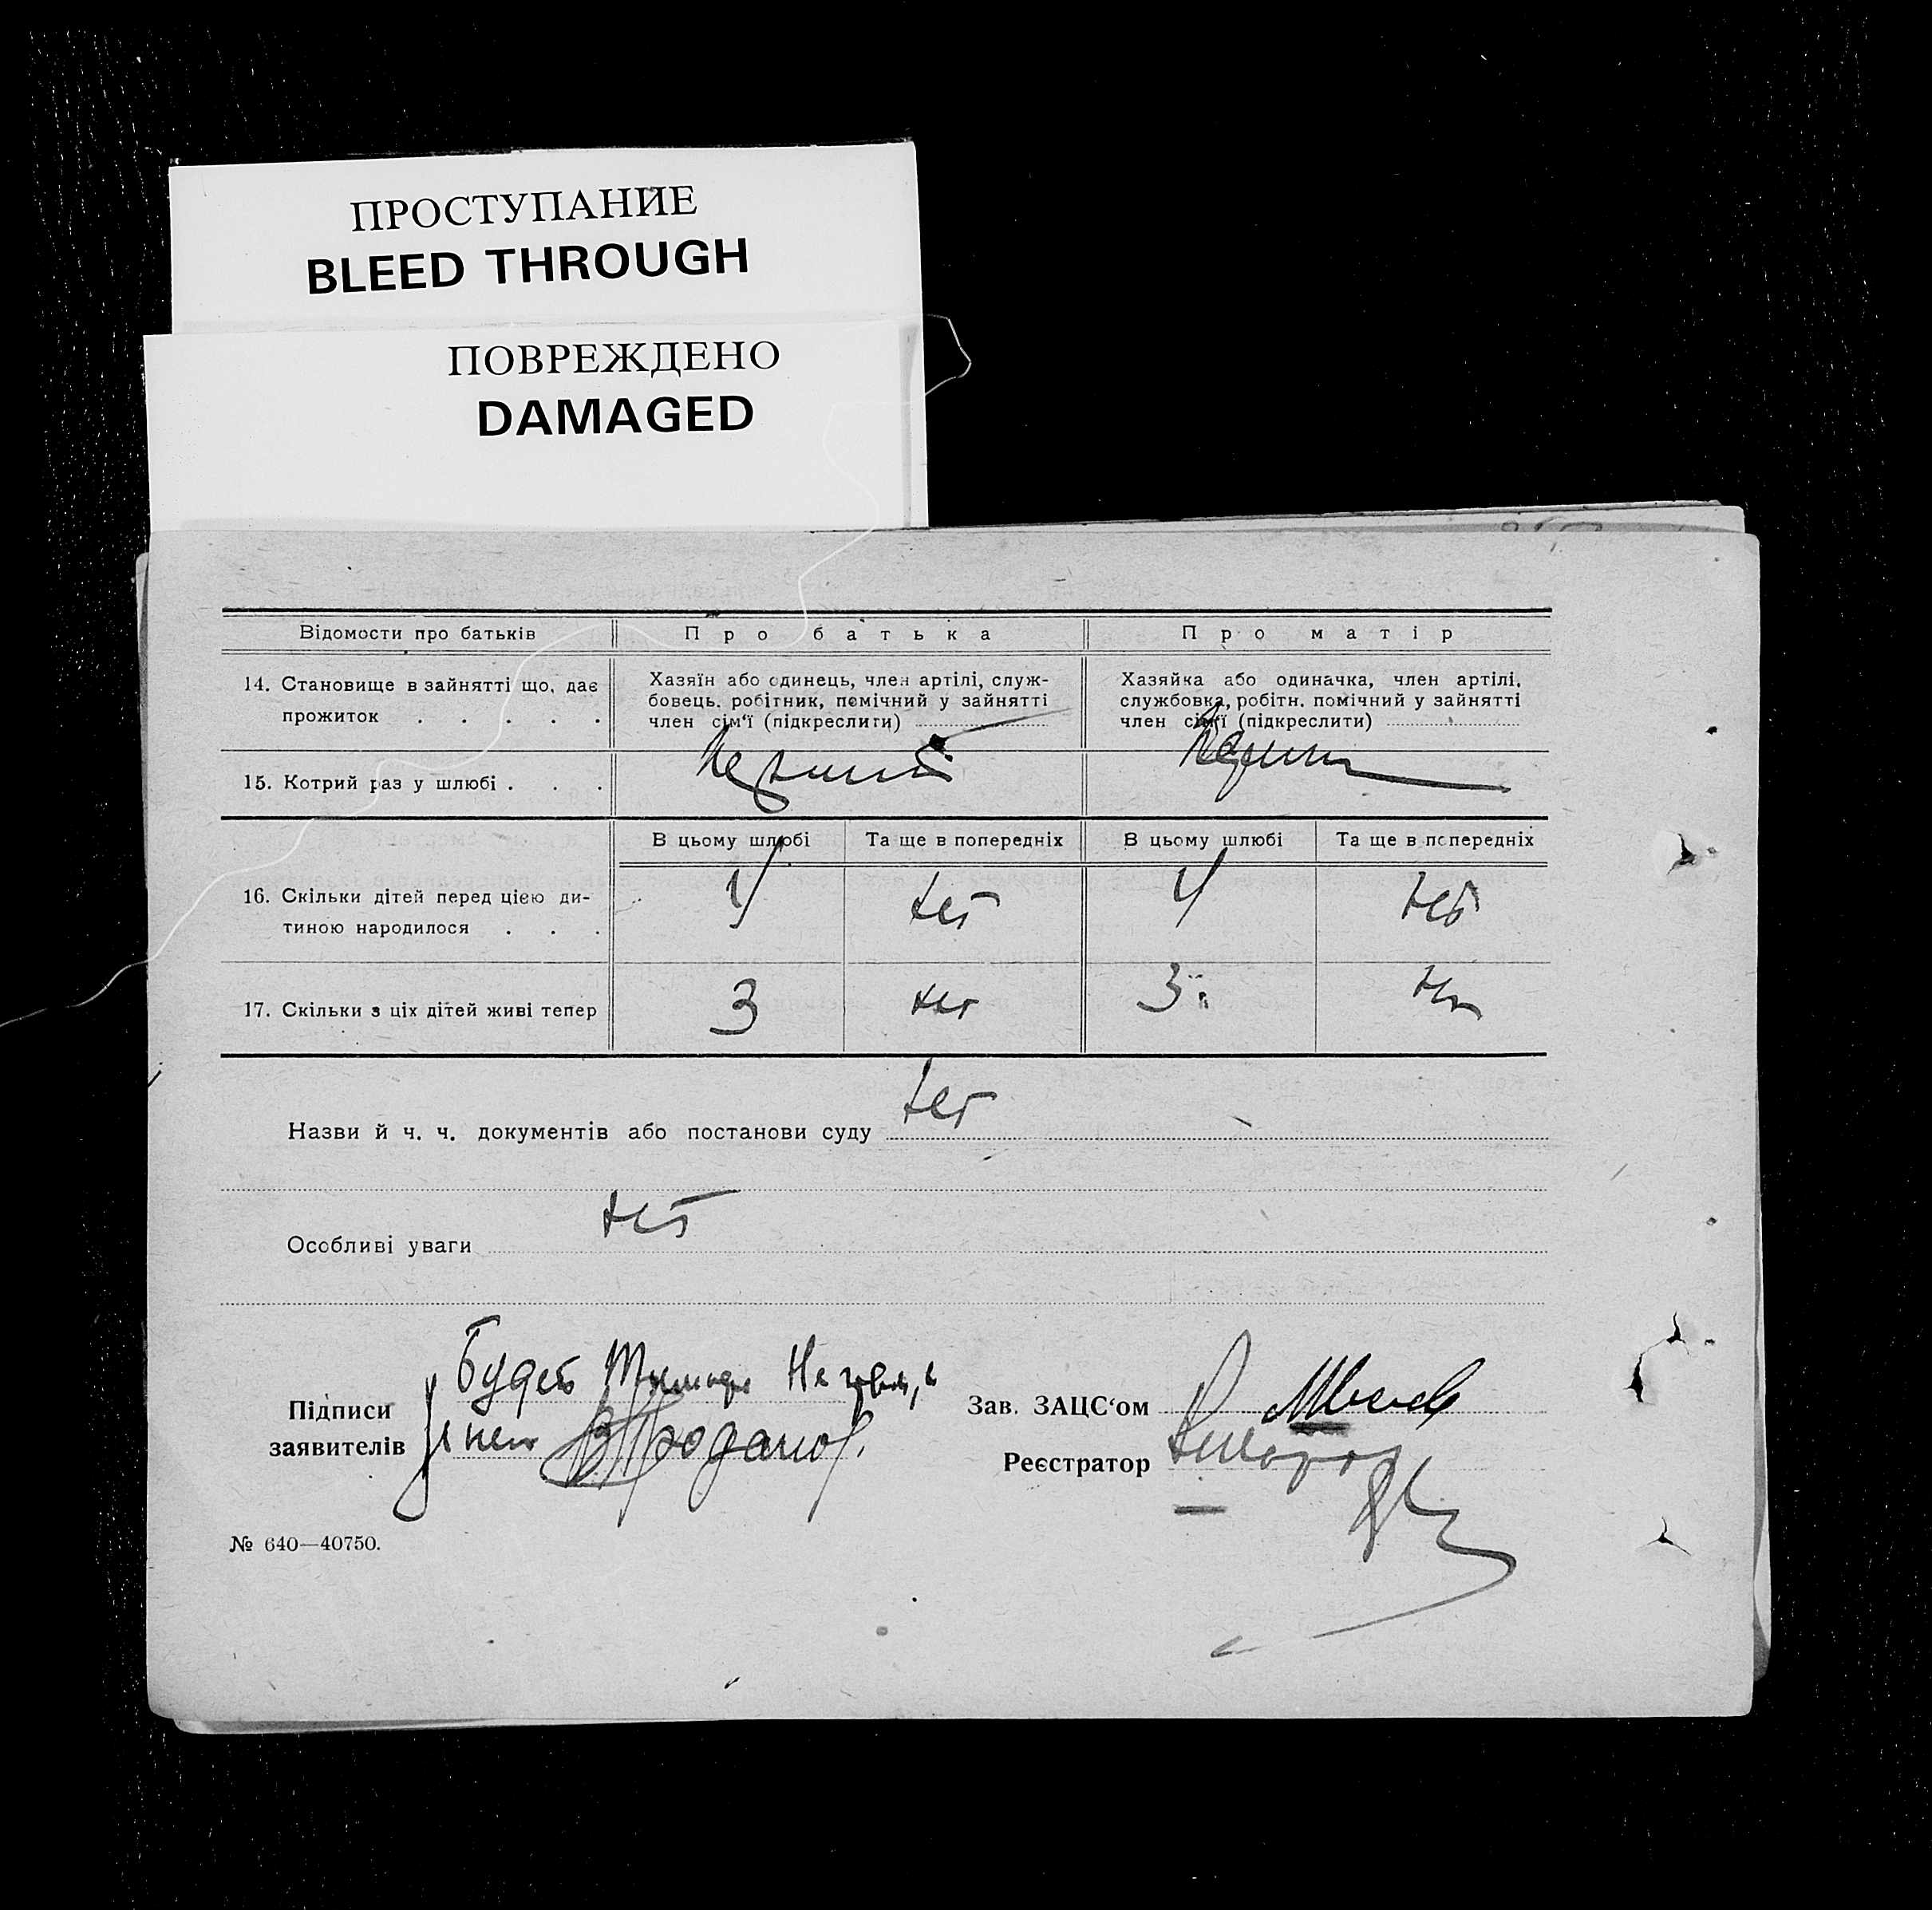 ПРОСТУПАНИЕ
BLEED THROUGH
ПОВРЕЖДЕНО
DAMAGED
Відомости про батьків Про батька Про матір
14. Становище в зайнятті що, дає прожиток . . . . .
Хазяїн або одинець, член артілі, служ-
бовець. робітник, помічний у зайнятті
член сім'ї (підкреслити)
Хазяйка або одиначка, член артілі,
службовка, робітн. помічний у зайнятті
член сім'ї (підкреслити)
15. Котрий раз у шлюбі . . .
В цьому шлюбі Та ще в попередніх В цьому шлюбі Та ще в попередніх
16. Скільки дітей перед цією ди-
тиною народилося . . . 4 нет 4 нет
17. Скільки з ціх дітей живі тепер 3 нет 3 нет
Назви й ч. ч. документів або постанови суду нет
Особливі уваги нет
Підписи
заявителів
Зав. ЗАЦС'ом
Реєстратор
№ 640—40750.